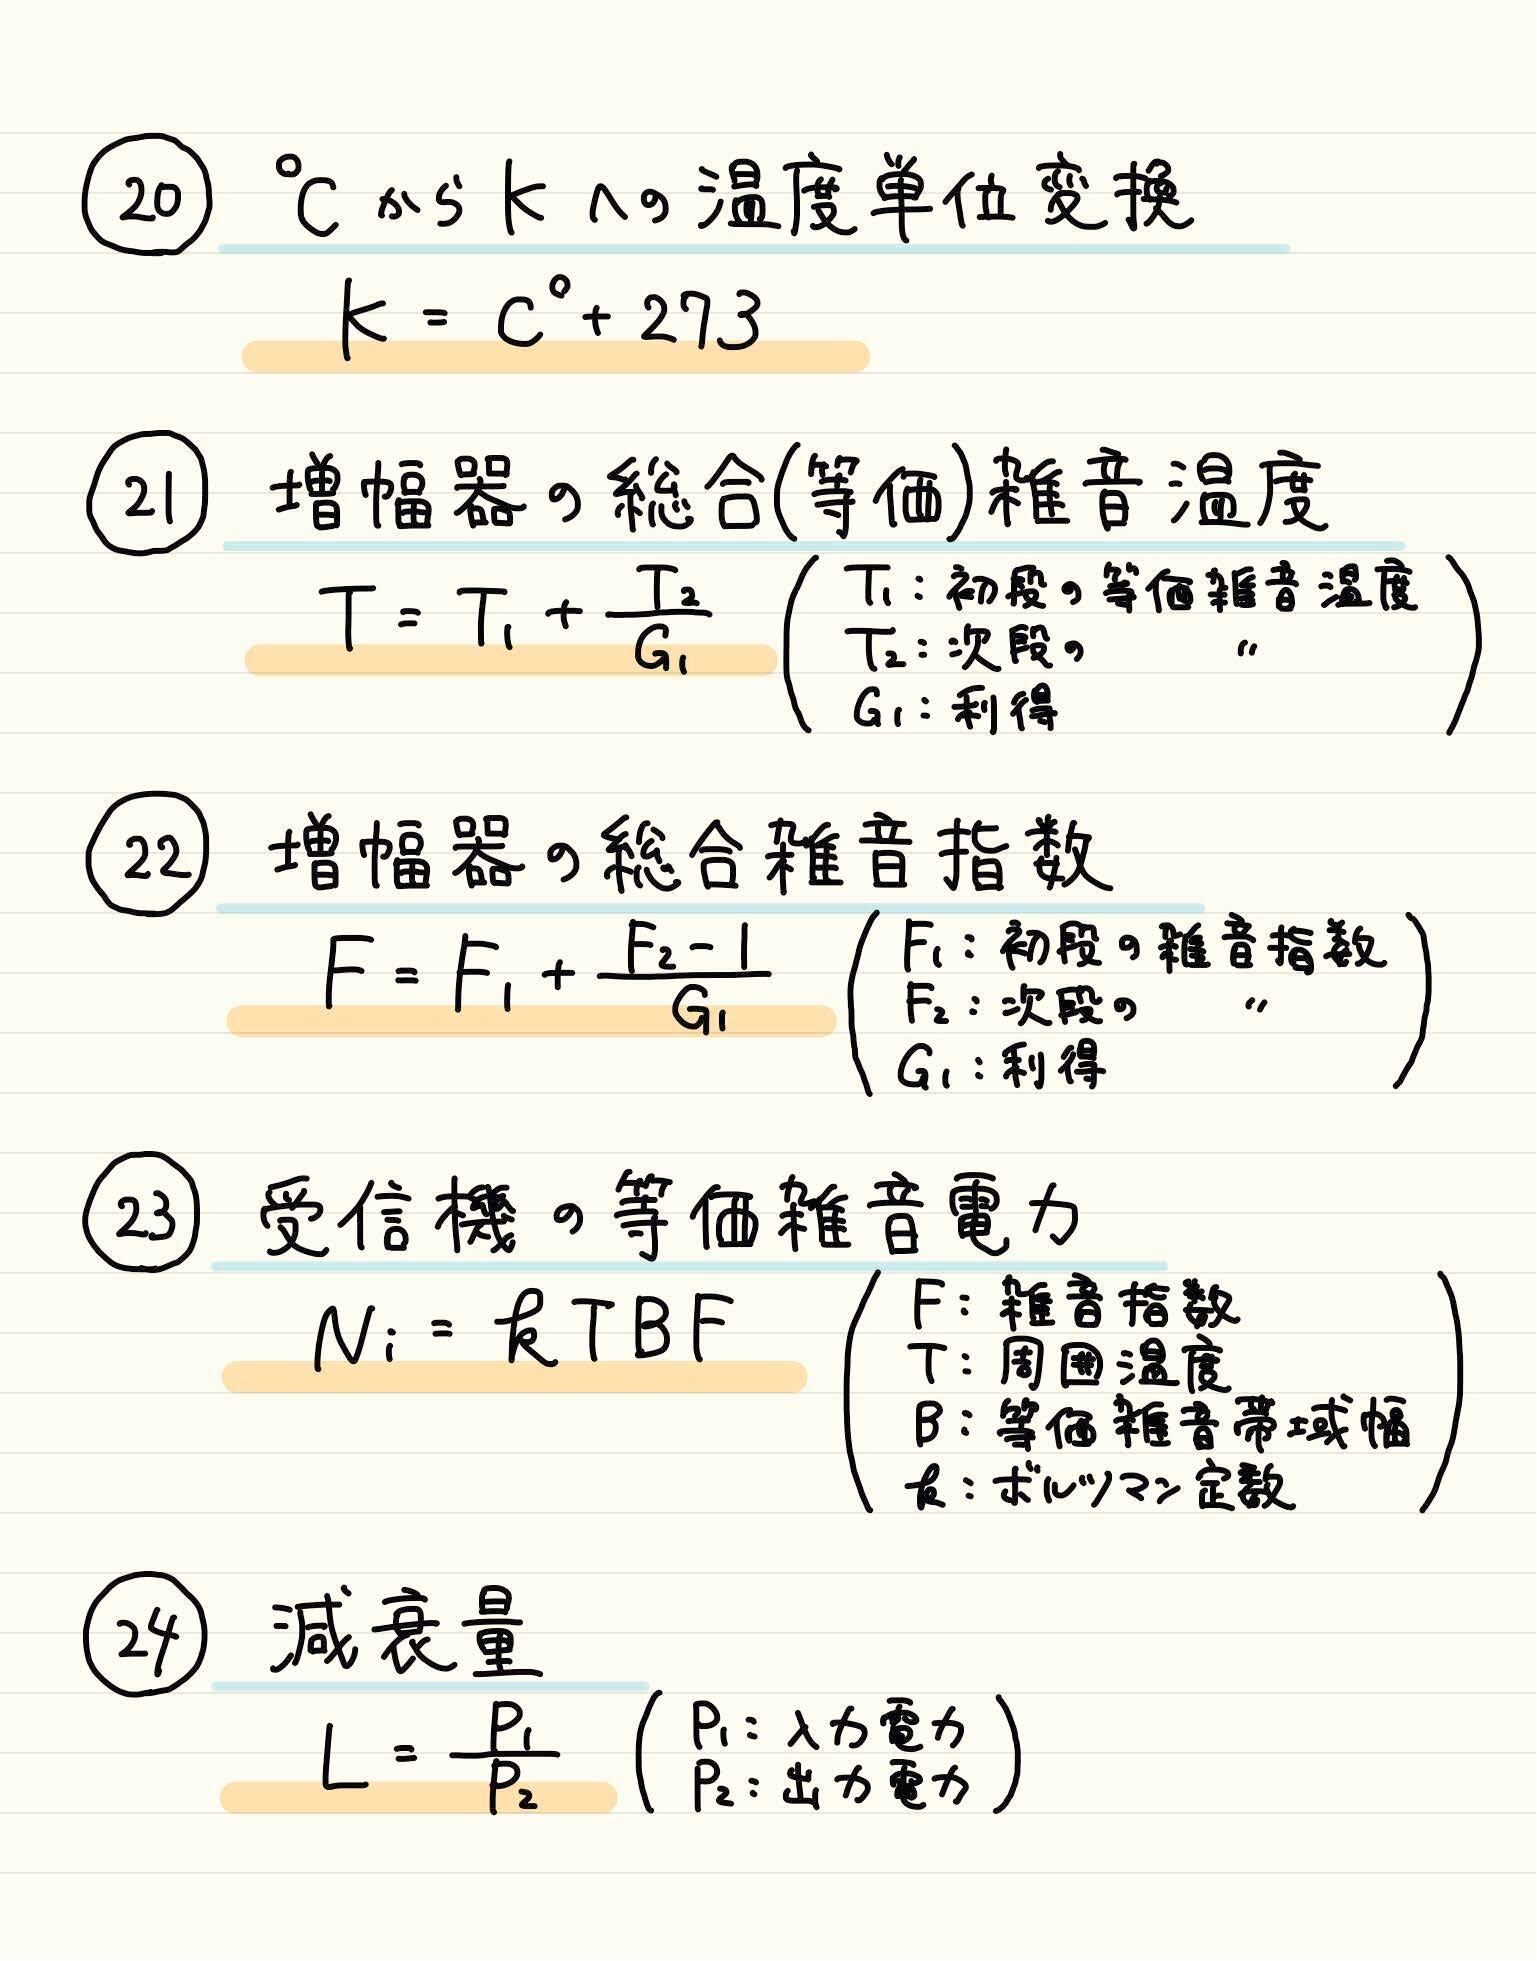 ⑳ °CからKへの温度単位変換
K = C° + 273
㉑ 増幅器の総合(等価)雑音温度
T = T₁ + T₂/G₁
T₁: 初段の等価雑音温度
T₂: 次段の 〃
G₁: 利得
㉒ 増幅器の総合雑音指数
F = F₁ + (F₂-1)/G₁
F₁: 初段の雑音指数
F₂: 次段の 〃
G₁: 利得
㉓ 受信機の等価雑音電力
Ni = kTBF
F: 雑音指数
T: 周囲温度
B: 等価雑音帯域幅
k: ボルツマン定数
㉔ 減衰量
L = P₁/P₂
P₁: 入力電力
P₂: 出力電力